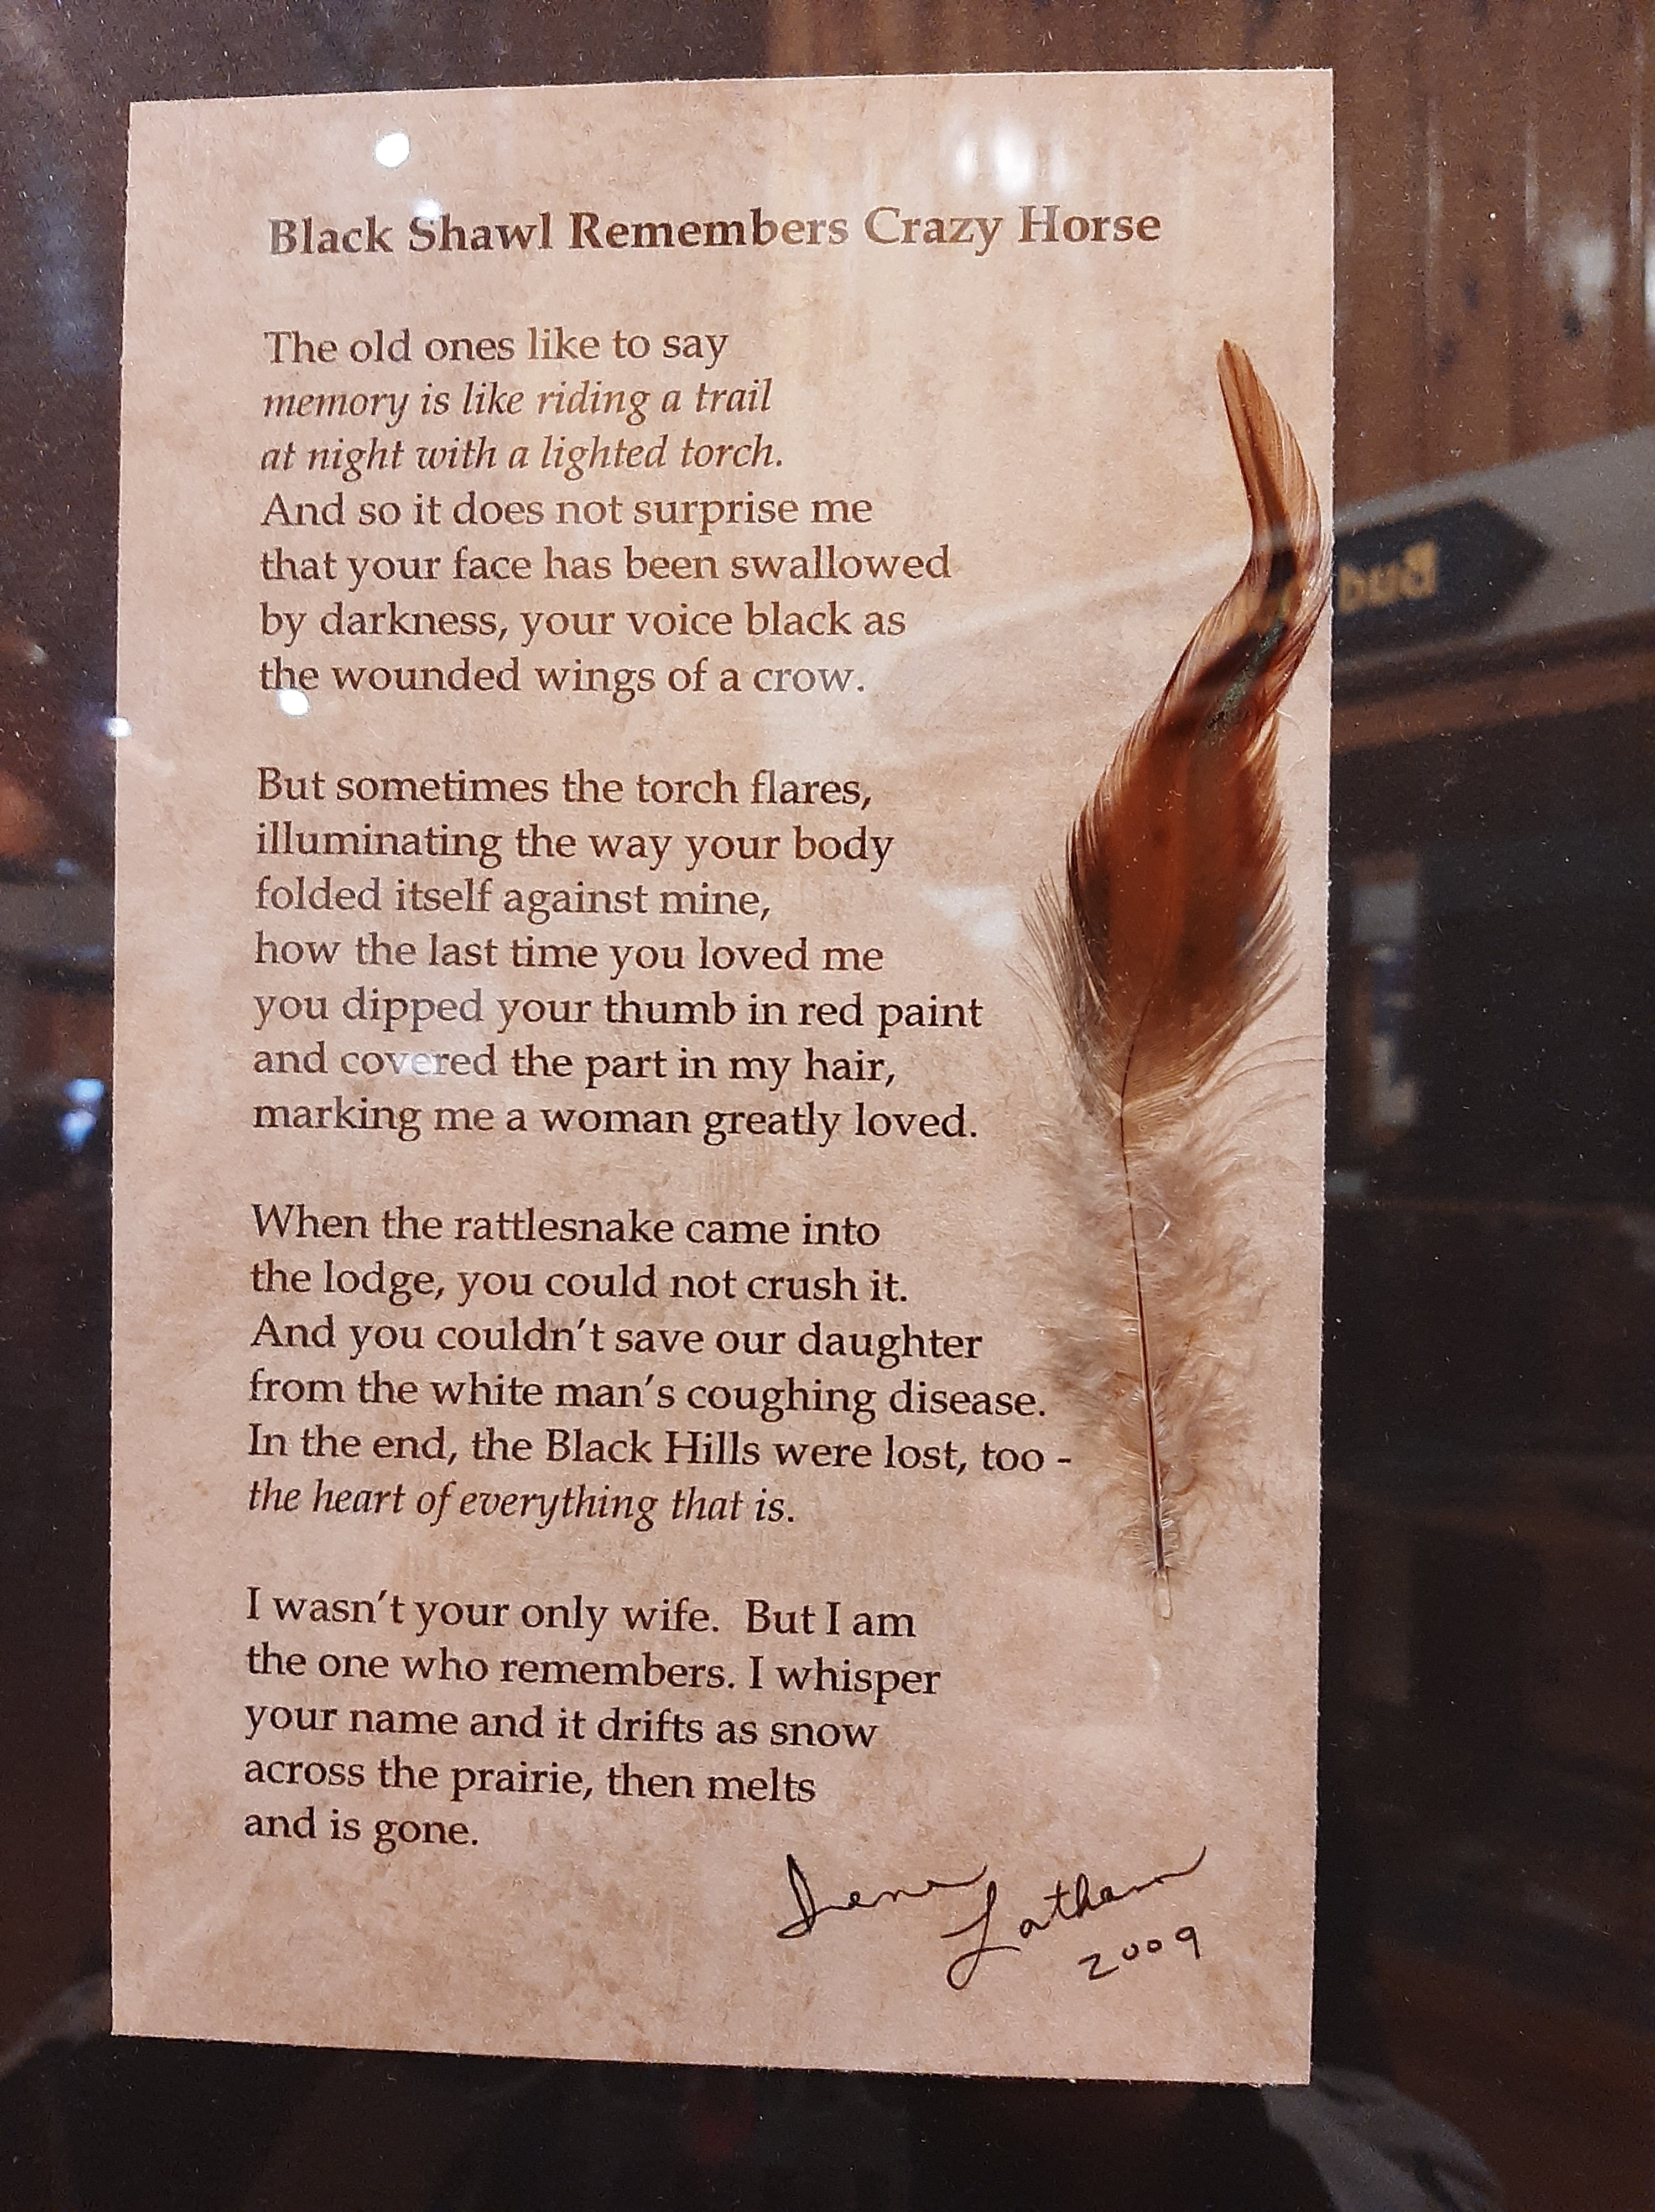 Black Shawl Remembers Crazy Horse
The old ones like to say
memory is like riding a trail
at night with a lighted torch.
And so it does not surprise me
that your face has been swallowed
by darkness, your voice black as
the wounded wings of a crow.
But sometimes the torch flares,
illuminating the way your body
folded itself against mine,
how the last time you loved me
you dipped your thumb in red paint
and covered the part in my hair,
marking me a woman greatly loved.
When the rattlesnake came into
the lodge, you could not crush it.
And you couldn't save our daughter
from the white man's coughing disease.
In the end, the Black Hills were lost, too -
the heart of everything that is.
I wasn't your only wife. But I am
the one who remembers. I whisper
your name and it drifts as snow
across the prairie, then melts
and is gone.
Irene Latham
2009
Bud